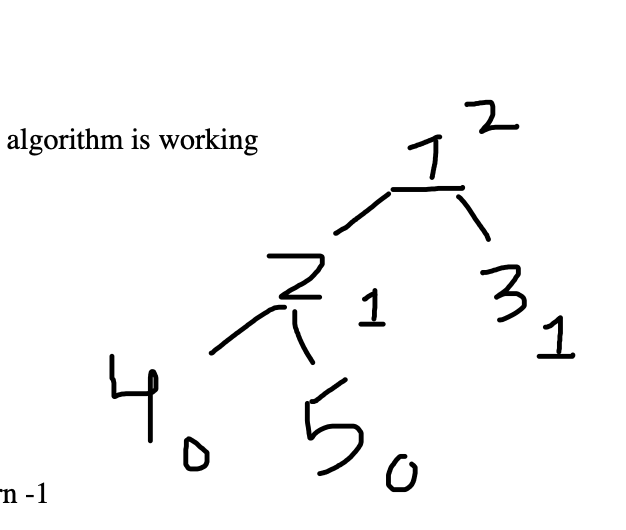 2
algorithm is working
1
2
1
3
1
4
0
5
0
rn -1